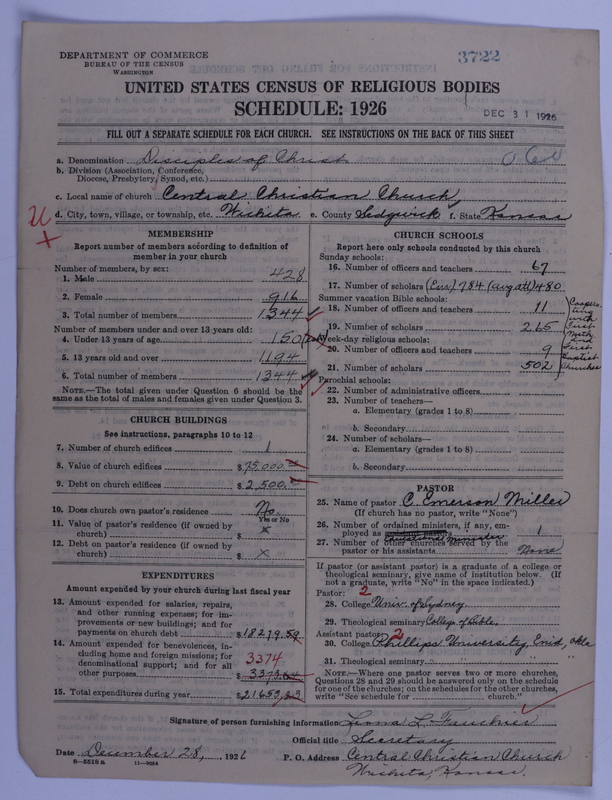 DEPARTMENT OF COMMERCE
BUREAU OF THE CENSUS
WASHINGTON
3722
UNITED STATES CENSUS OF RELIGIOUS BODIES
SCHEDULE: 1926
DEC 31 1926
FILL OUT A SEPARATE SCHEDULE FOR EACH CHURCH. SEE INSTRUCTIONS ON THE BACK OF THIS SHEET
a. Denomination Disciples of Christ
b. Division (Association, Conference, Diocese, Presbytery, Synod, etc.)
c. Local name of church Central Christian Church
d. City, town, village, or township, etc. Wichita e. County Sedgwick f. State Kansas
MEMBERSHIP
Report number of members according to definition of member in your church
Number of members, by sex:
1. Male 428
2. Female 916
3. Total number of members 1344
Number of members under and over 13 years old:
4. Under 13 years of age 150
5. 13 years old and over 1194
6. Total number of members 1344
NOTE.—The total given under Question 6 should be the same as the total of males and females given under Question 3.
CHURCH BUILDINGS
See instructions, paragraphs 10 to 12
7. Number of church edifices 1
8. Value of church edifices $75000.
9. Debt on church edifices $2500.
10. Does church own pastor's residence? No
Yes or No
11. Value of pastor's residence (if owned by church) $ x
12. Debt on pastor's residence (if owned by church) $ x
EXPENDITURES
Amount expended by your church during last fiscal year
13. Amount expended for salaries, repairs, and other running expenses; for improvements or new buildings; and for payments on church debt $18279.59
14. Amount expended for benevolences, including home and foreign missions; for denominational support; and for all other purposes 3374 $3373.64
15. Total expenditures during year $21653.23
CHURCH SCHOOLS
Report here only schools conducted by this church
Sunday schools:
16. Number of officers and teachers 67
17. Number of scholars (Enr) 784 (avg att) 480
Summer vacation Bible schools:
18. Number of officers and teachers 11
19. Number of scholars 265
Week-day religious schools:
20. Number of officers and teachers 9
21. Number of scholars 502
Cooperative with First Meth and First Baptist Churches
Parochial schools:
22. Number of administrative officers
23. Number of teachers—
a. Elementary (grades 1 to 8)
b. Secondary
24. Number of scholars—
a. Elementary (grades 1 to 8)
b. Secondary
PASTOR
25. Name of pastor C. Emerson Miller
(If church has no pastor, write "None")
26. Number of ordained ministers, if any, employed as 1
27. Number of other churches served by the pastor or his assistants None
If pastor (or assistant pastor) is a graduate of a college or theological seminary, give name of institution below. (If not a graduate, write "No" in the space indicated.)
Pastor: 2
28. College Univ. of Sydney
29. Theological seminary College of Bible
Assistant pastor: 2
30. College Phillips University, Enid, Okla
31. Theological seminary
NOTE.—Where one pastor serves two or more churches, Questions 28 and 29 should be answered only on the schedule for one of the churches; on the schedules for the other churches, write "See schedule for church."
Signature of person furnishing information Leona L.
Official title Secretary
Date December 28, 1926 P. O. Address Central Christian Church
8—5518a 11—9034 Wichita, Kansas.